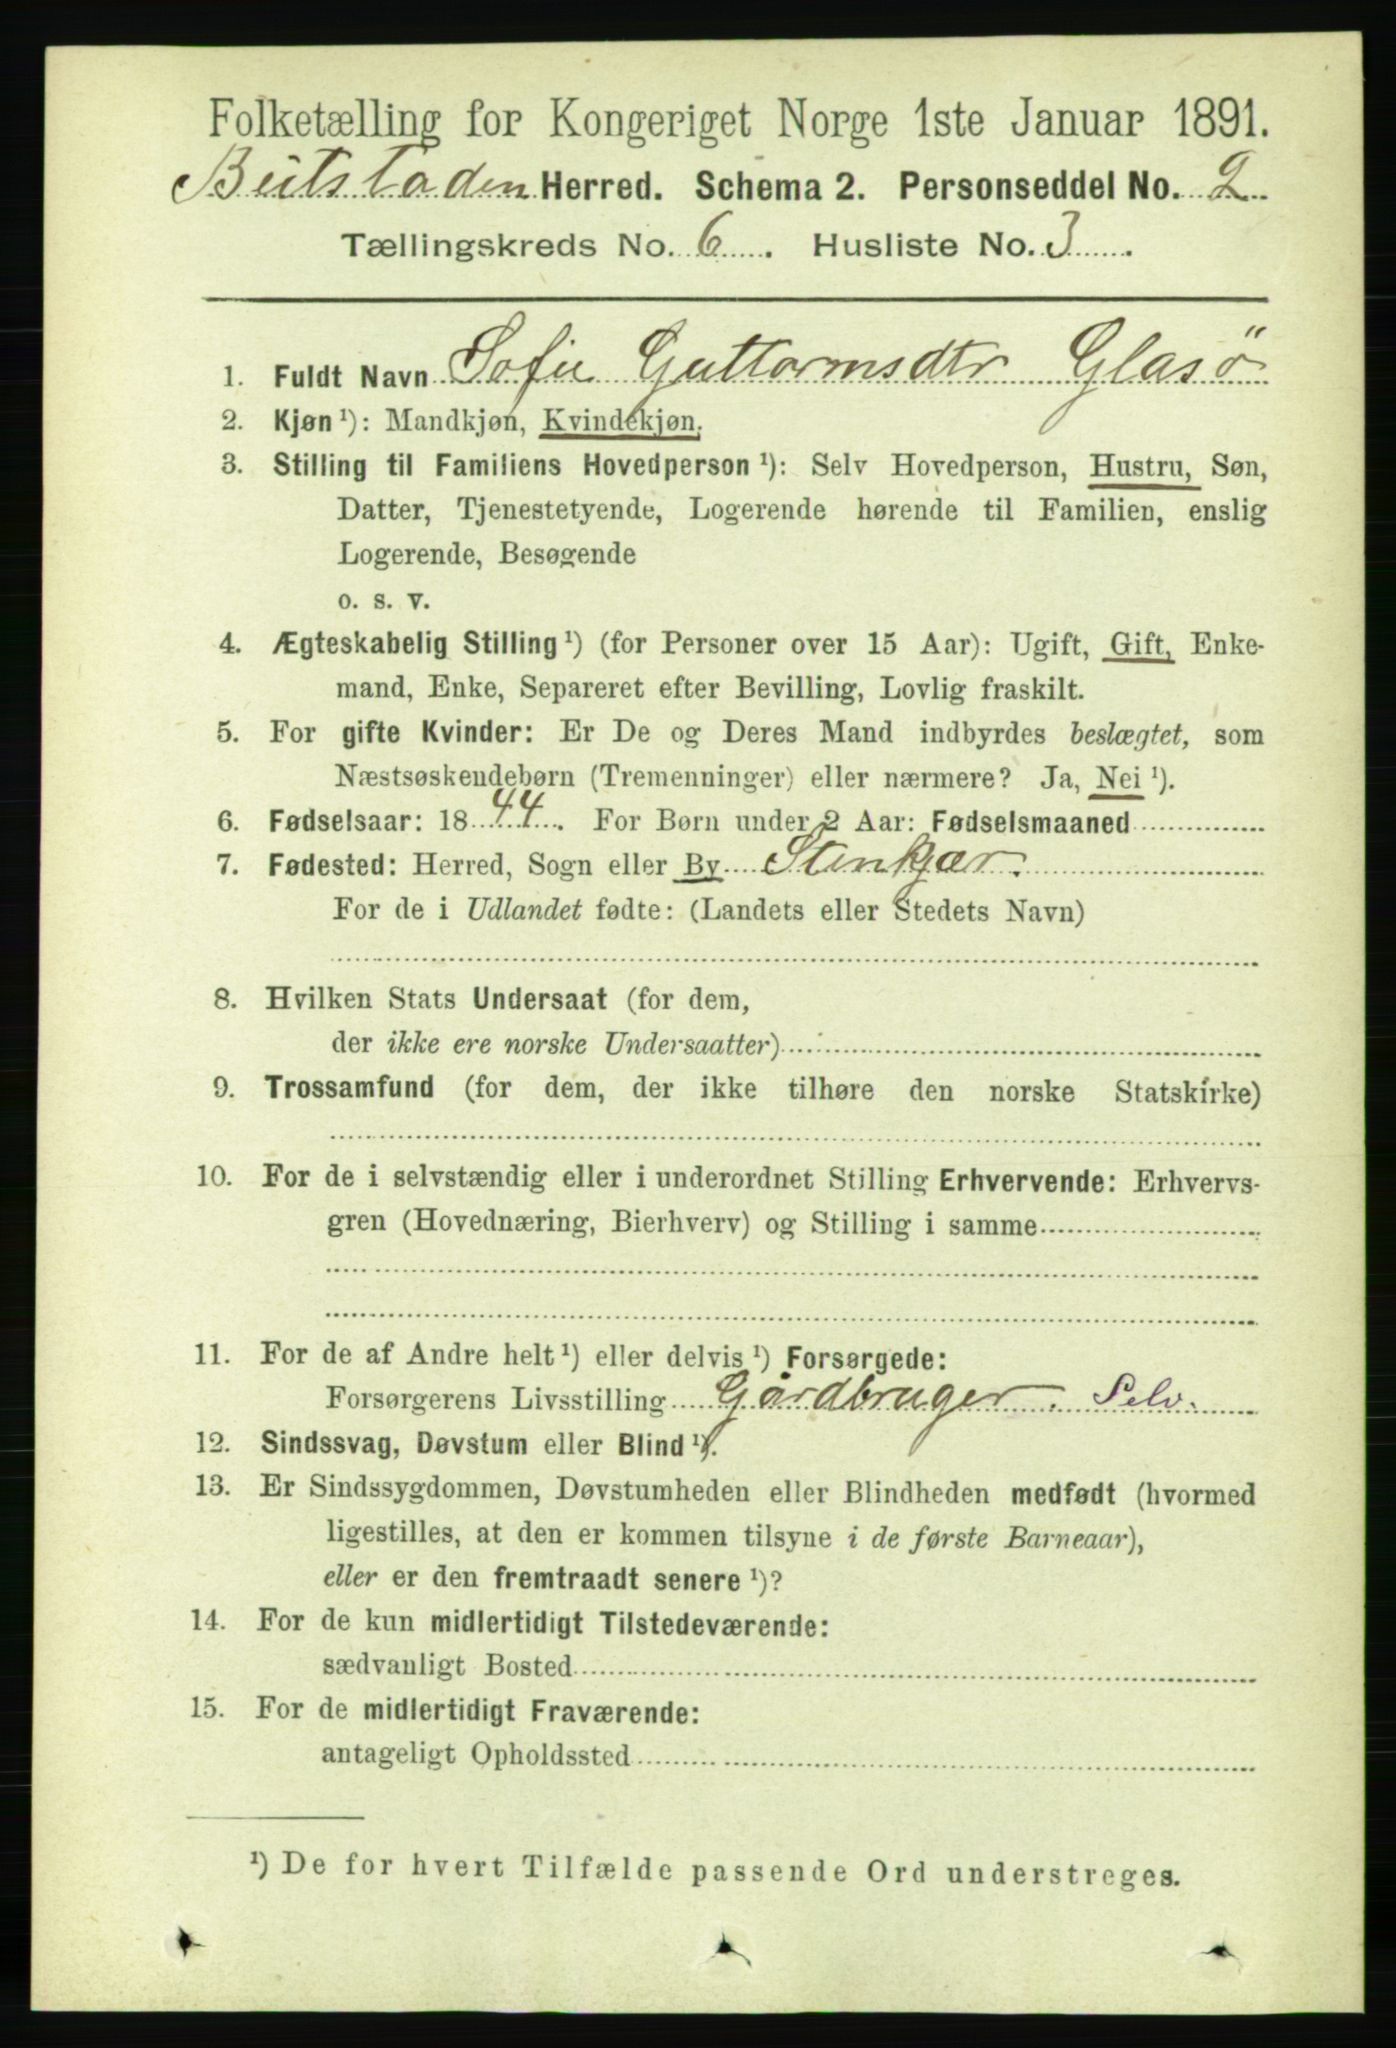 Folketælling for Kongeriget Norge 1ste Januar 1891.
Beitstaden Herred. Schema 2. Personseddel No. 2
Tællingskreds No. 6. Husliste No. 3.
1. Fuldt Navn Sofie Guttormsdtr Glasö
2. Kjøn ¹): Mandkjøn, Kvindekjøn.
3. Stilling til Familiens Hovedperson ¹): Selv Hovedperson, Hustru, Søn,
Datter, Tjenestetyende, Logerende hørende til Familien, enslig
Logerende, Besøgende
o. s. v.
4. Ægteskabelig Stilling ¹) (for Personer over 15 Aar): Ugift, Gift, Enke-
mand, Enke, Separeret efter Bevilling, Lovlig fraskilt.
5. For gifte Kvinder: Er De og Deres Mand indbyrdes beslægtet, som
Næstsøskendebørn (Tremenninger) eller nærmere? Ja, Nei ¹).
6. Fødselsaar: 1844. For Børn under 2 Aar: Fødselsmaaned
7. Fødested: Herred, Sogn eller By Stenkjær.
For de i Udlandet fødte: (Landets eller Stedets Navn)
8. Hvilken Stats Undersaat (for dem,
der ikke ere norske Undersaatter)
9. Trossamfund (for dem, der ikke tilhøre den norske Statskirke)
10. For de i selvstændig eller i underordnet Stilling Erhvervende: Erhvervs-
gren (Hovednæring, Bierhverv) og Stilling i samme
11. For de af Andre helt ¹) eller delvis ¹) Forsørgede:
Forsørgerens Livsstilling Gårdbruger. Selv.
12. Sindssvag, Døvstum eller Blind ¹).
13. Er Sindssygdommen, Døvstumheden eller Blindheden medfødt (hvormed
ligestilles, at den er kommen tilsyne i de første Barneaar),
eller er den fremtraadt senere ¹)?
14. For de kun midlertidigt Tilstedeværende:
sædvanligt Bosted
15. For de midlertidigt Fraværende:
antageligt Opholdssted
¹) De for hvert Tilfælde passende Ord understreges.